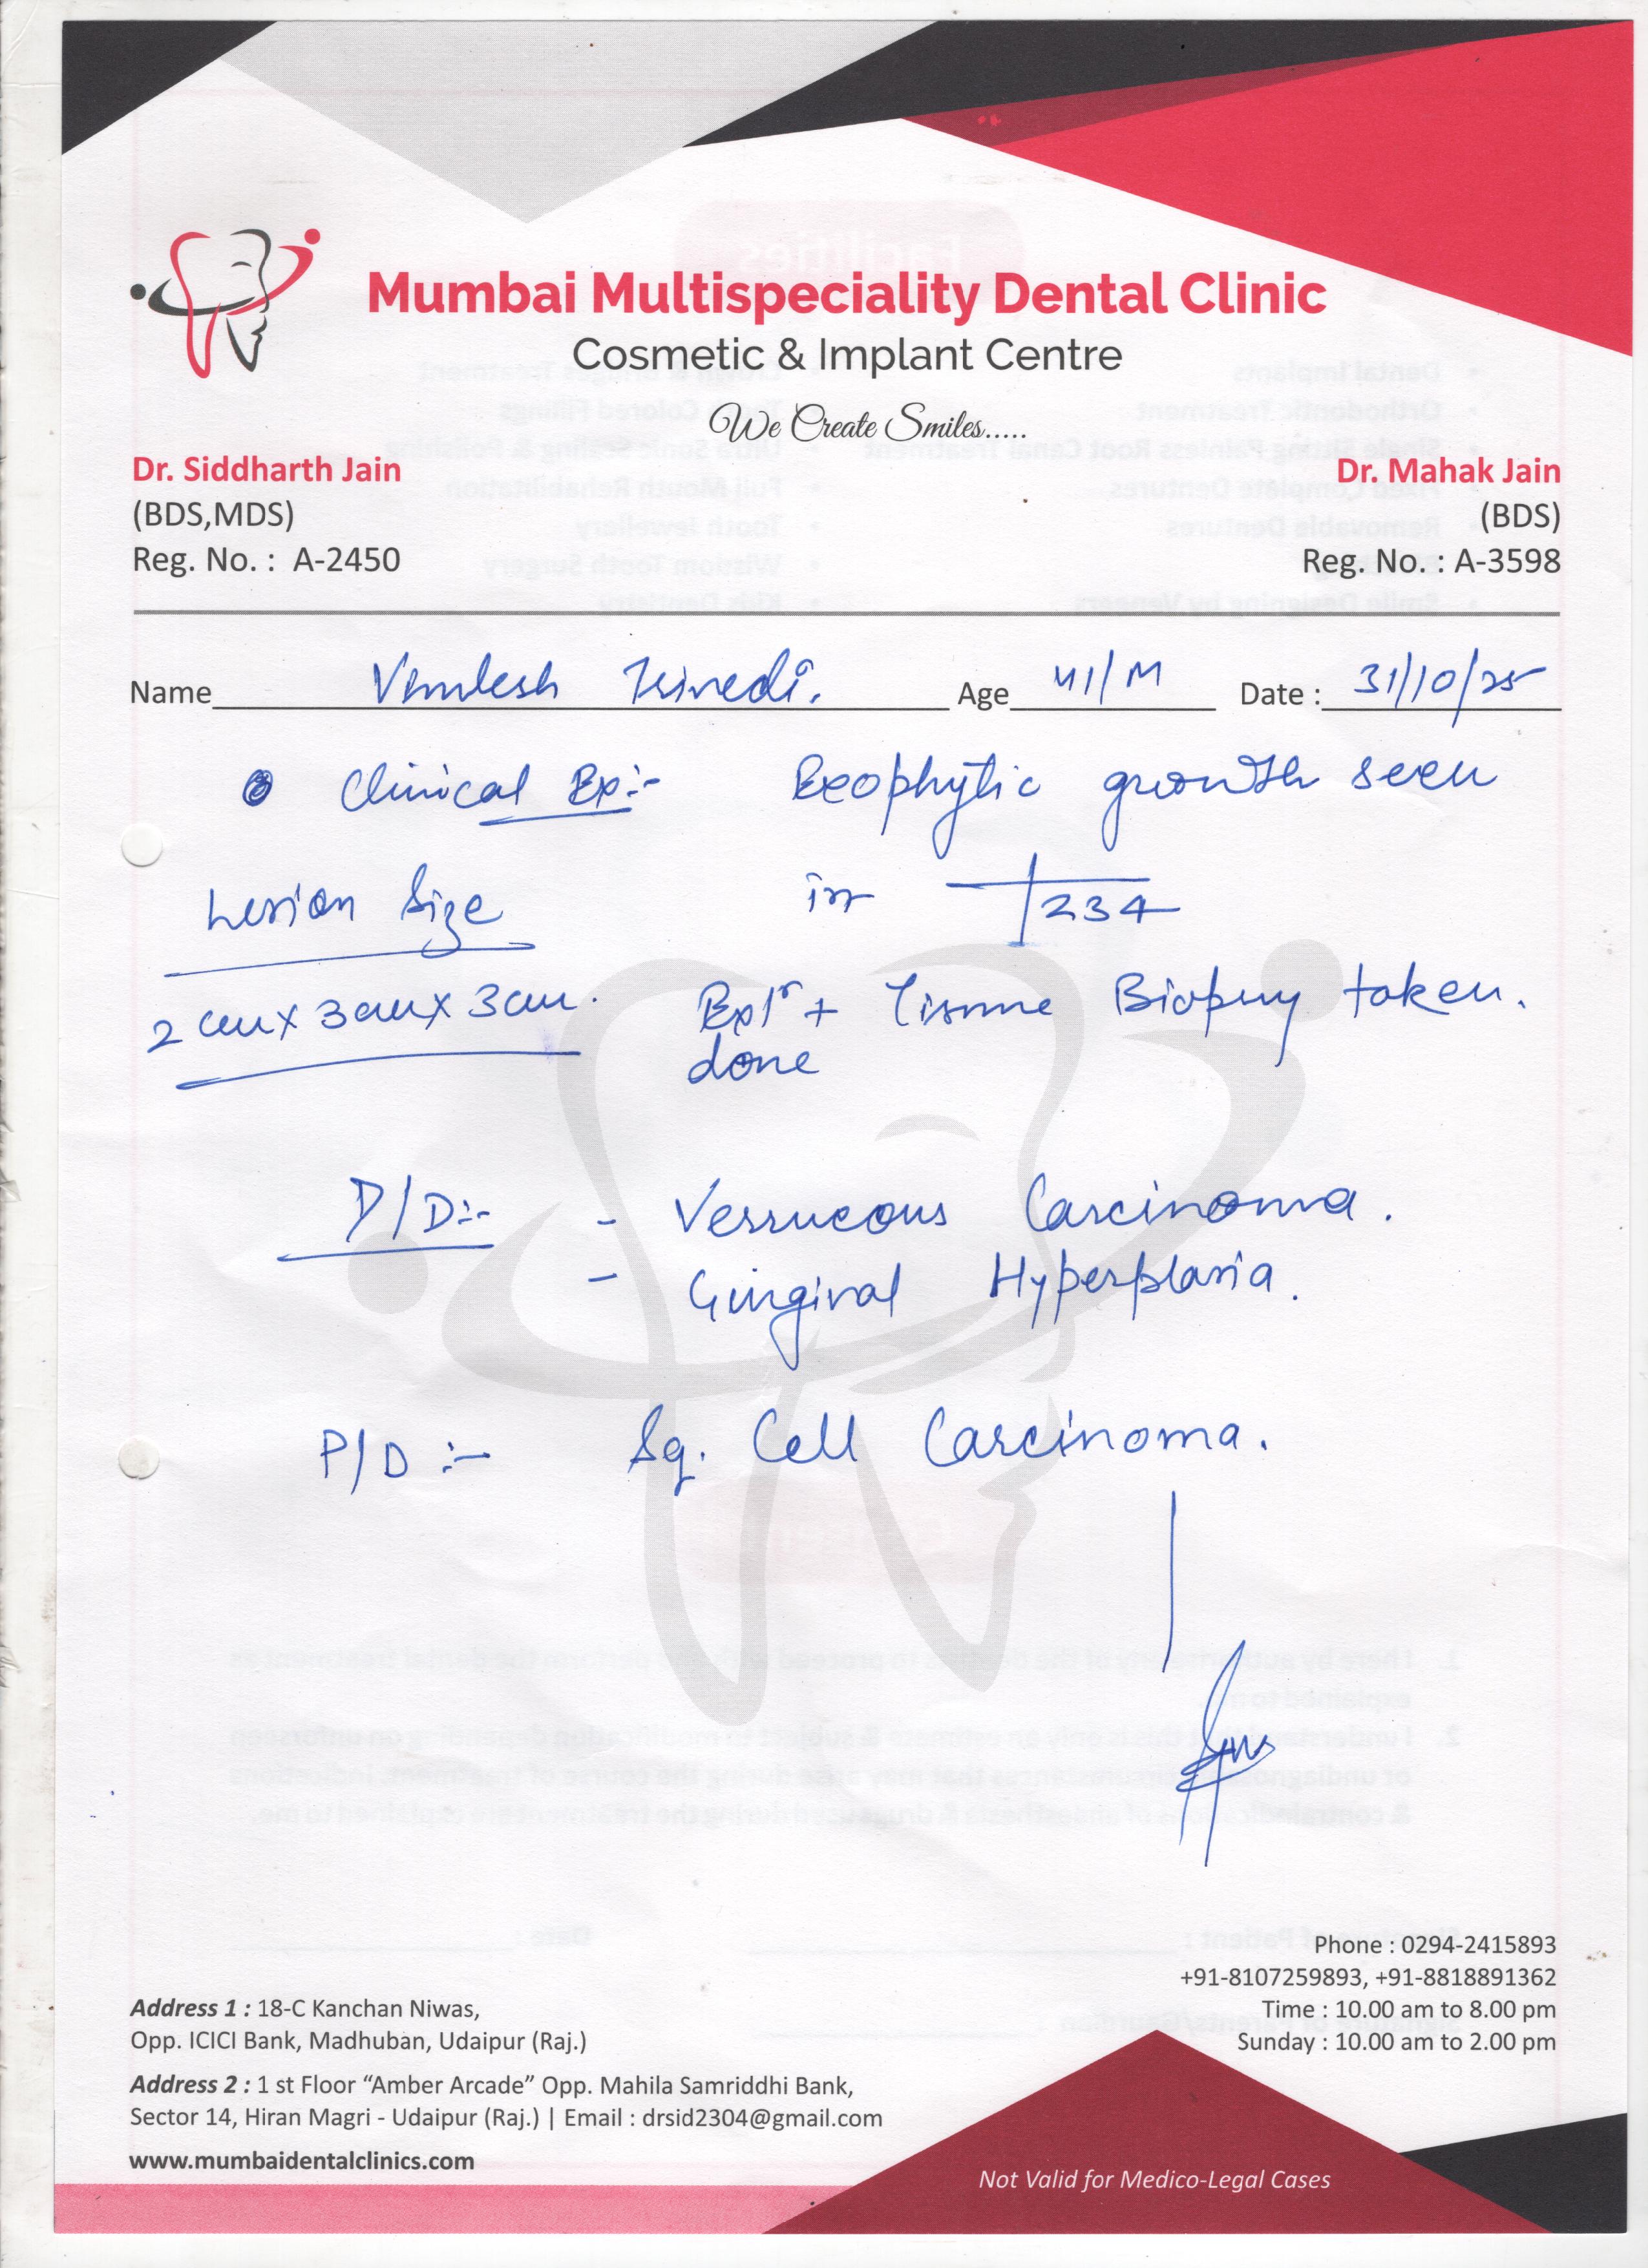 Mumbai Multispeciality Dental Clinic
Cosmetic & Implant Centre
We Create Smiles.....
Dr. Siddharth Jain
(BDS,MDS)
Reg. No. : A-2450
Dr. Mahak Jain
(BDS)
Reg. No. : A-3598
Name Vimlesh Trivedi. Age 41/M Date : 31/10/25
Clinical Ex:- Exophytic growth seen
Lesion Size in 234
2 cm x 3 cm x 3 cm. + Tissue Biopsy taken.
done
D/D:- - Verrucous Carcinoma.
- Gingival Hyperplasia.
P/D :- Sq. Cell Carcinoma.
Phone : 0294-2415893
+91-8107259893, +91-8818891362
Time : 10.00 am to 8.00 pm
Sunday : 10.00 am to 2.00 pm
Address 1 : 18-C Kanchan Niwas,
Opp. ICICI Bank, Madhuban, Udaipur (Raj.)
Address 2 : 1 st Floor “Amber Arcade” Opp. Mahila Samriddhi Bank,
Sector 14, Hiran Magri - Udaipur (Raj.) | Email : drsid2304@gmail.com
www.mumbaidentalclinics.com
Not Valid for Medico-Legal Cases